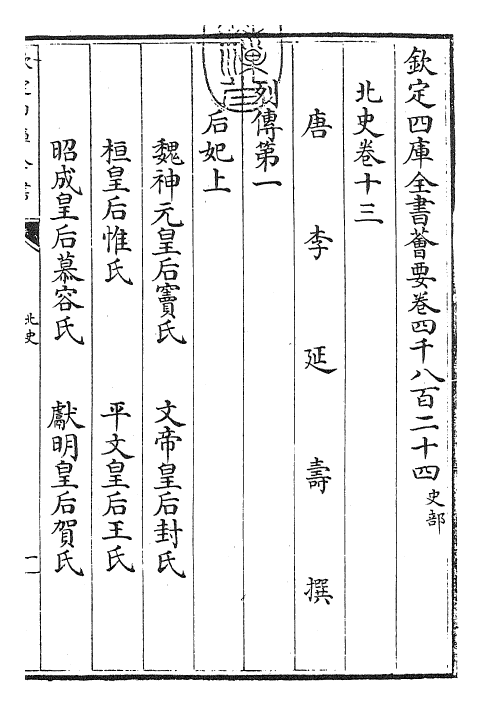 欽定四庫全書薈要卷四千八百二十四 史部
北史卷十三
唐 李 延 壽 撰
列傳第一
后妃上
魏神元皇后竇氏 文帝皇后封氏
桓皇后惟氏 平文皇后王氏
昭成皇后慕容氏 獻明皇后賀氏
北史
一